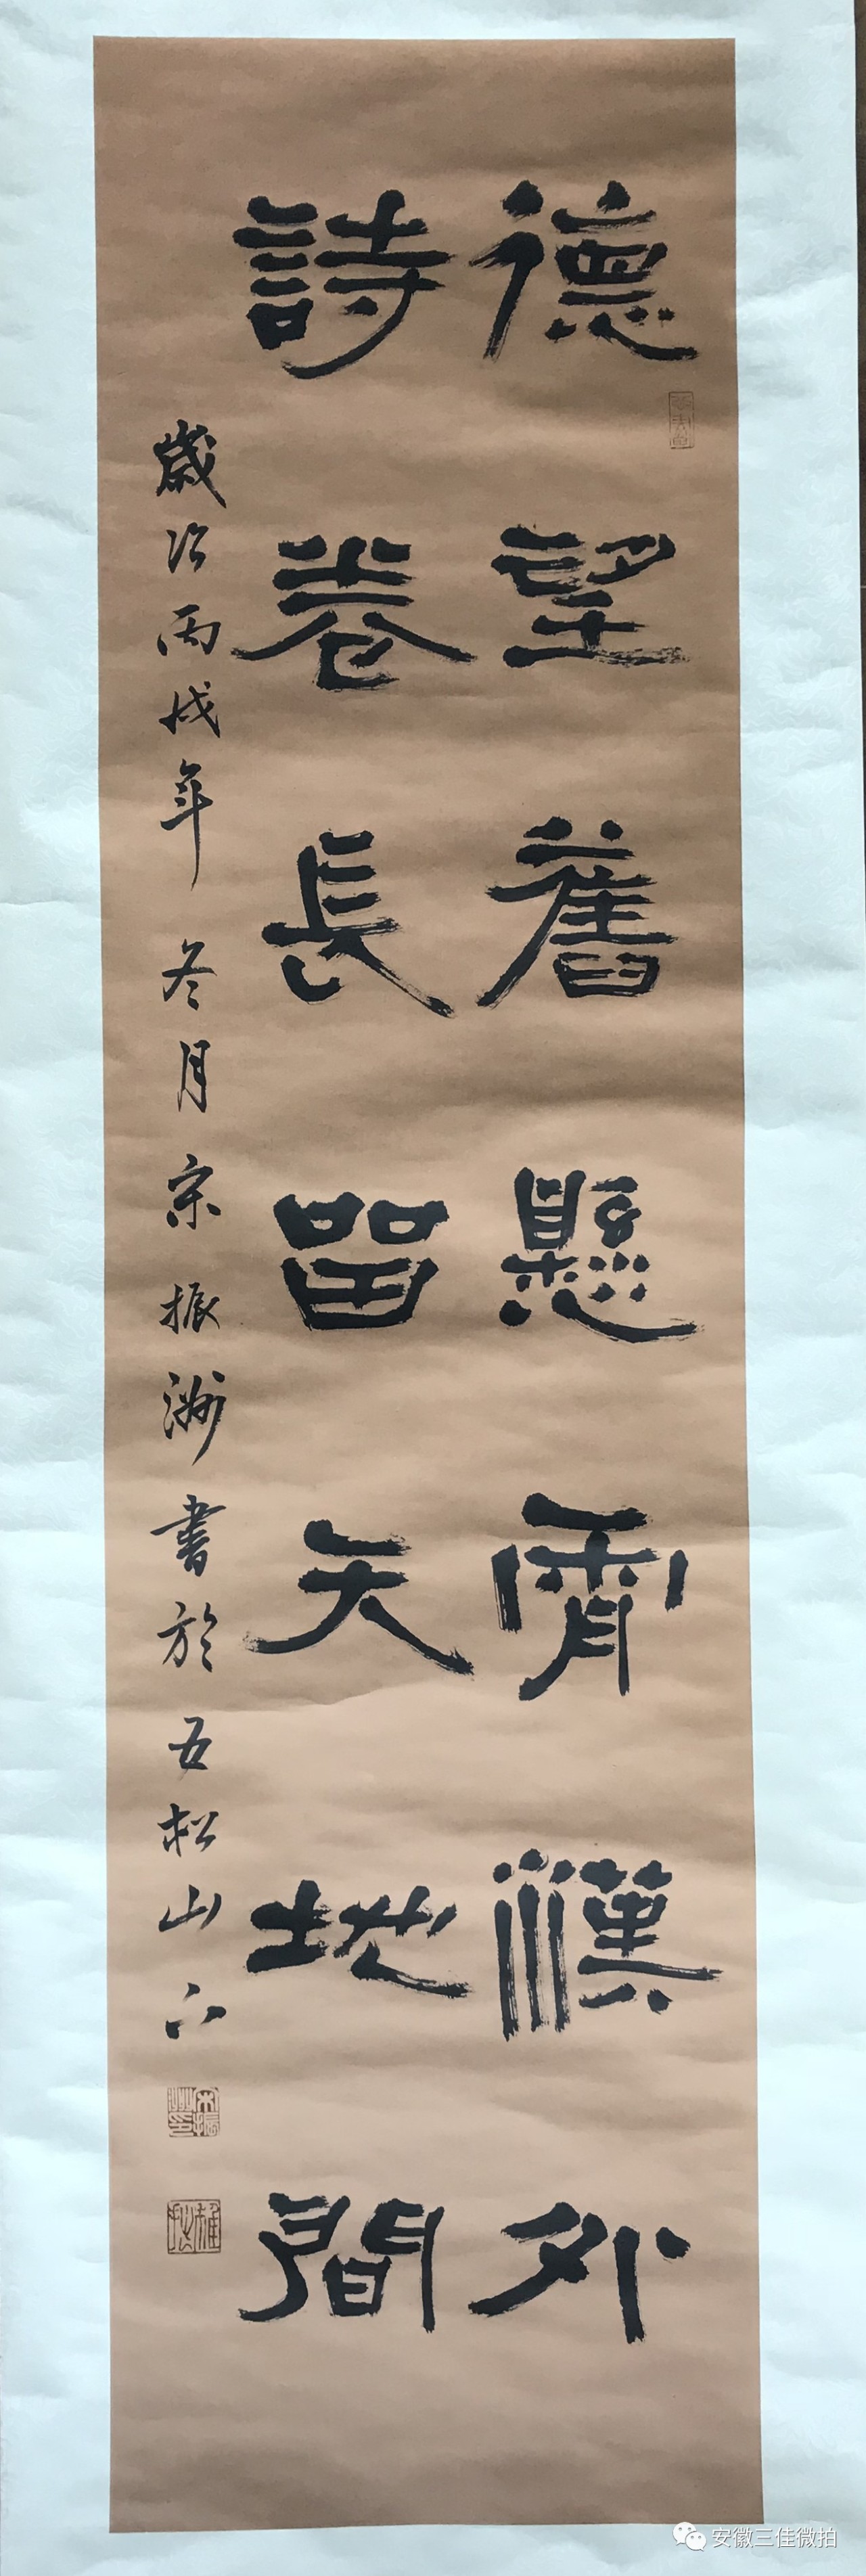 德望舊懸霄漢外
詩卷長留天地間
歲次丙戌年冬月宗振洲書於五松山下
安徽三佳微拍